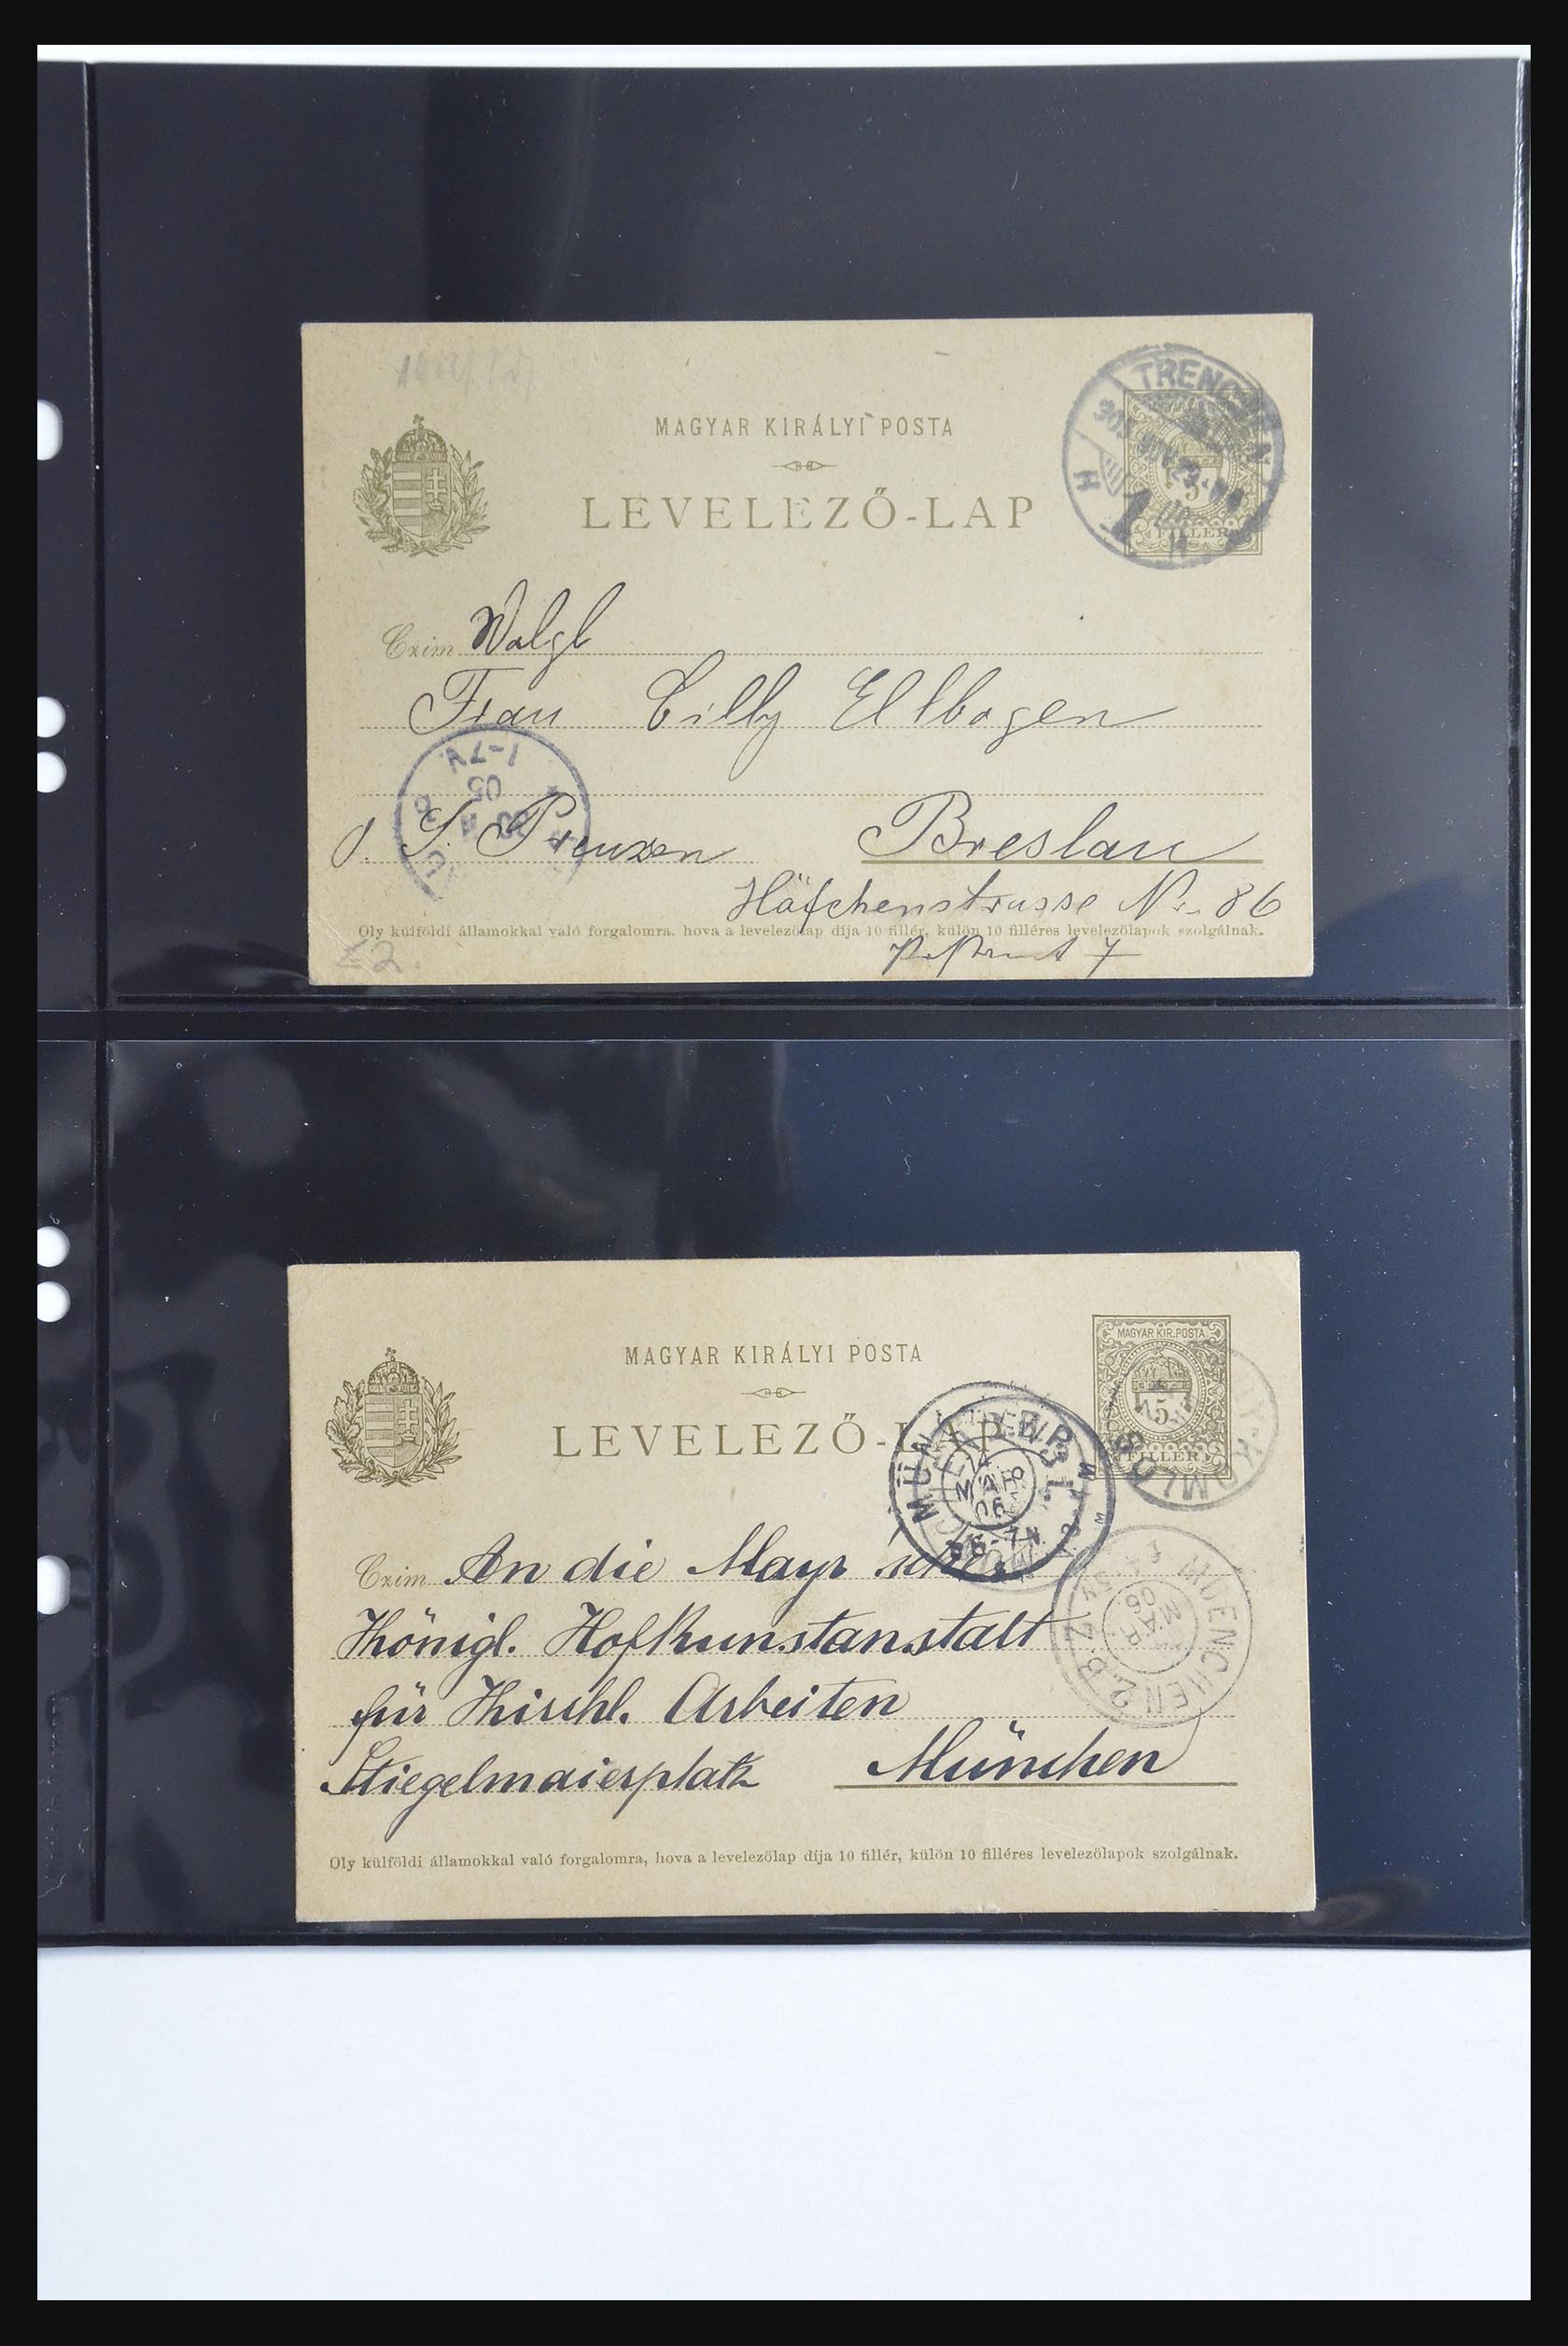 MAGYAR KIRÁLYI POSTA
LEVELEZŐ-LAP
FILLER
Czim Wolgb
Frau Cilly Ellbogen
S. Preuzen Breslau
Höfchenstrasse Nr. 86
Oly külföldi államokkal való forgalomra, hova a levelezőlap díja 10 fillér, külön 10 filléres levelezőlapok szolgálnak.
MAGYAR KIR. POSTA
MAGYAR KIRÁLYI POSTA
5
FILLER
LEVELEZŐ-LAP
MAR
06
Czim An die Mayr'sche
Königl. Hofkunstanstalt
MUENCHEN 2 B Z
MAR
06
für Kirchl. Arbeiten
Stiegelmaierplatz München
Oly külföldi államokkal való forgalomra, hova a levelezőlap díja 10 fillér, külön 10 filléres levelezőlapok szolgálnak.